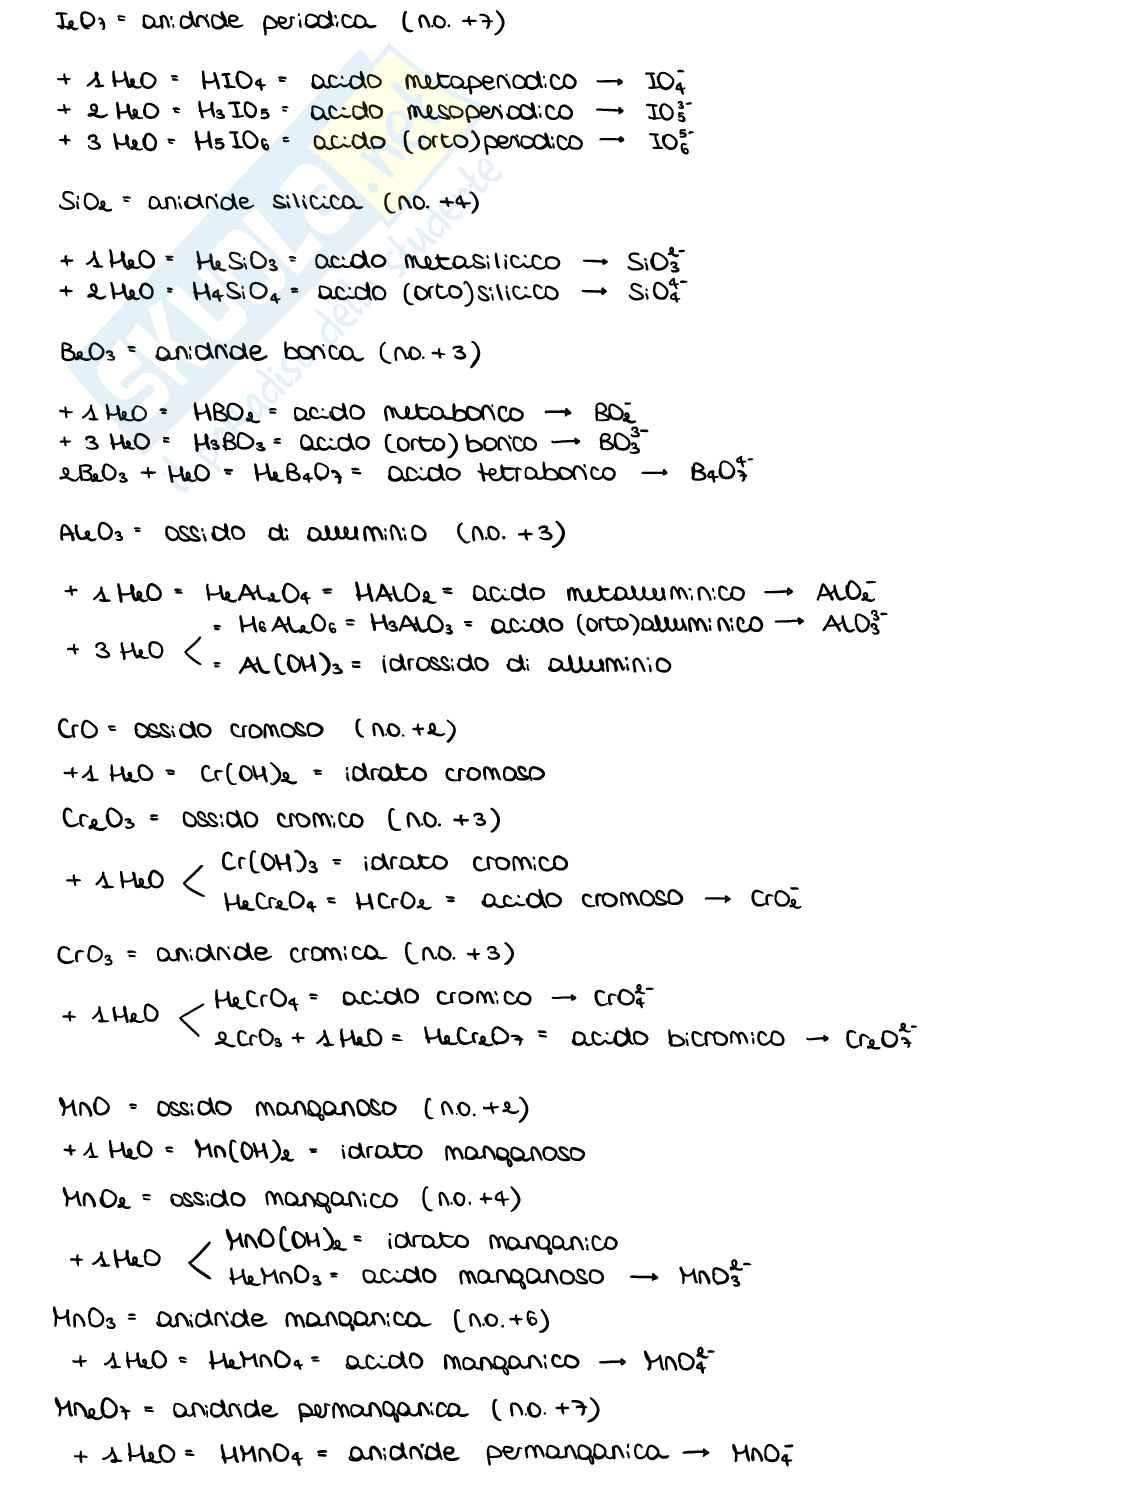 I₂O₇ = anidride periodica (n.o. +7)
+ 1 H₂O = HIO₄ = acido metaperiodico → IO₄⁻
+ 2 H₂O = H₃IO₅ = acido mesoperiodico → IO₅³⁻
+ 3 H₂O = H₅IO₆ = acido (orto)periodico → IO₆⁵⁻
SiO₂ = anidride silicica (n.o. +4)
+ 1 H₂O = H₂SiO₃ = acido metasilicico → SiO₃²⁻
+ 2 H₂O = H₄SiO₄ = acido (orto)silicico → SiO₄⁴⁻
B₂O₃ = anidride borica (n.o. +3)
+ 1 H₂O = HBO₂ = acido metaborico → BO₂⁻
+ 3 H₂O = H₃BO₃ = acido (orto) borico → BO₃³⁻
2B₂O₃ + H₂O = H₂B₄O₇ = acido tetraborico → B₄O₇⁴⁻
Al₂O₃ = ossido di alluminio (n.o. +3)
+ 1 H₂O = H₂Al₂O₄ = HAlO₂ = acido metalluminico → AlO₂⁻
= H₆Al₂O₆ = H₃AlO₃ = acido (orto)alluminico → AlO₃³⁻
+ 3 H₂O <
= Al(OH)₃ = idrossido di alluminio
CrO = ossido cromoso (n.o. +2)
+1 H₂O = Cr(OH)₂ = idrato cromoso
Cr₂O₃ = ossido cromico (n.o. +3)
Cr(OH)₃ = idrato cromico
+ 1 H₂O <
H₂Cr₂O₄ = HCrO₂ = acido cromoso → CrO₂⁻
CrO₃ = anidride cromica (n.o. +3)
H₂CrO₄ = acido cromico → CrO₄²⁻
+ 1 H₂O <
2CrO₃ + 1 H₂O = H₂Cr₂O₇ = acido bicromico → Cr₂O₇²⁻
MnO = ossido manganoso (n.o. +2)
+ 1 H₂O = Mn(OH)₂ = idrato manganoso
MnO₂ = ossido manganico (n.o. +4)
MnO(OH)₂ = idrato manganico
+ 1 H₂O <
H₂MnO₃ = acido manganoso → MnO₃²⁻
MnO₃ = anidride manganica (n.o. +6)
+ 1 H₂O = H₂MnO₄ = acido manganico → MnO₄²⁻
Mn₂O₇ = anidride permanganica (n.o. +7)
+ 1 H₂O = HMnO₄ = anidride permanganica → MnO₄⁻
SKUOLA.net
il paradiso dello studente